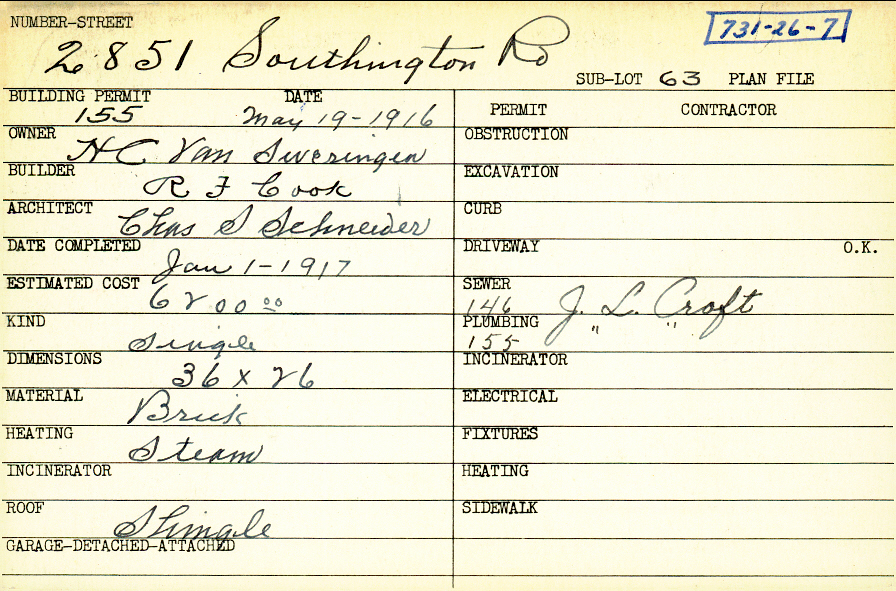 NUMBER-STREET
731-26-7
2851 Southington Rd
SUB-LOT 63 PLAN FILE
BUILDING PERMIT DATE
155 May 19-1916
OWNER
H C Van Sweringen
BUILDER
R F Cook
ARCHITECT
Chas S Schneider
DATE COMPLETED
Jan 1-1917
ESTIMATED COST
6200 00
KIND
Single
DIMENSIONS
36 x 26
MATERIAL
Brick
HEATING
Steam
INCINERATOR
ROOF
Shingle
GARAGE-DETACHED-ATTACHED
PERMIT CONTRACTOR
OBSTRUCTION
EXCAVATION
CURB
DRIVEWAY O.K.
SEWER
146 J. L. Croft
PLUMBING
155 " "
INCINERATOR
ELECTRICAL
FIXTURES
HEATING
SIDEWALK